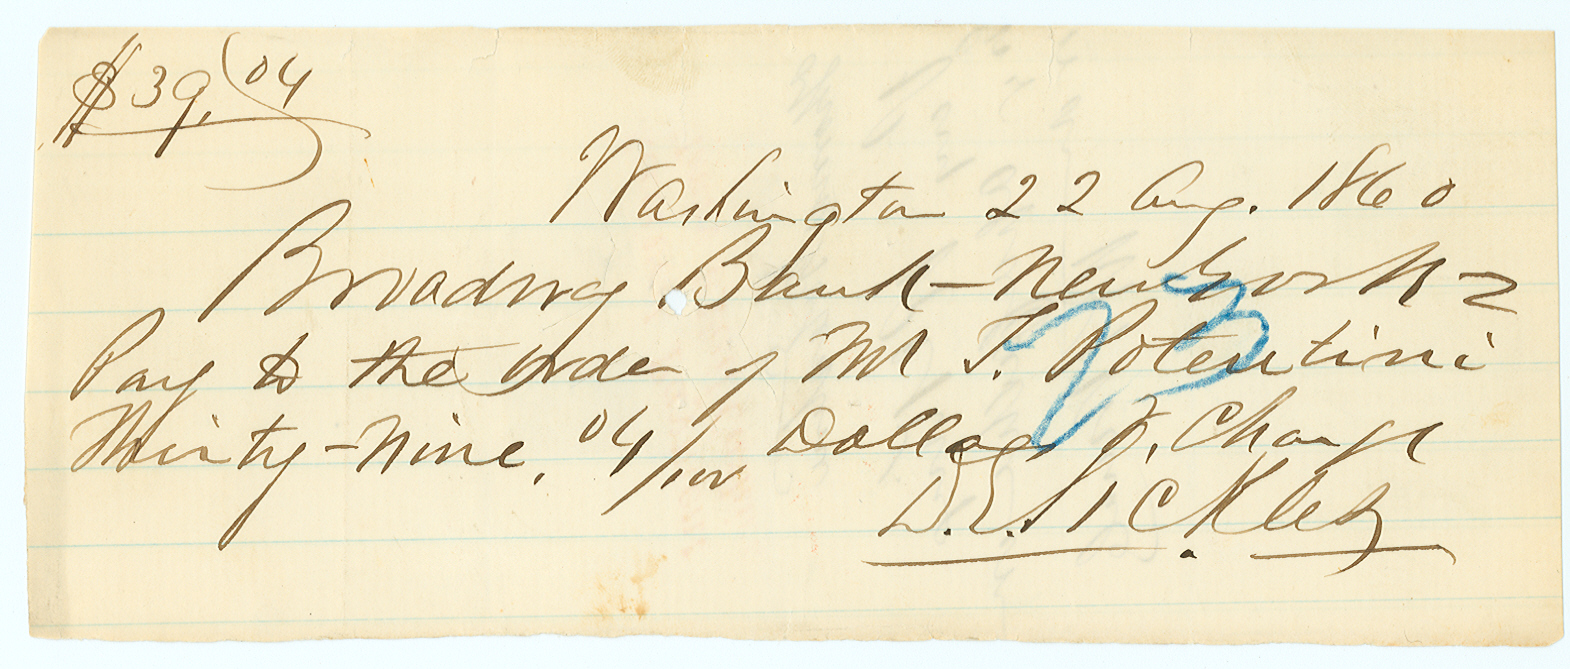 $39,04
Washington 22 Aug. 1860
Broadway Bank - New York -
Pay to the order of M T. Potentini
Thirty-Nine, 04/100 Dollars & Charge
D. E. Sickles